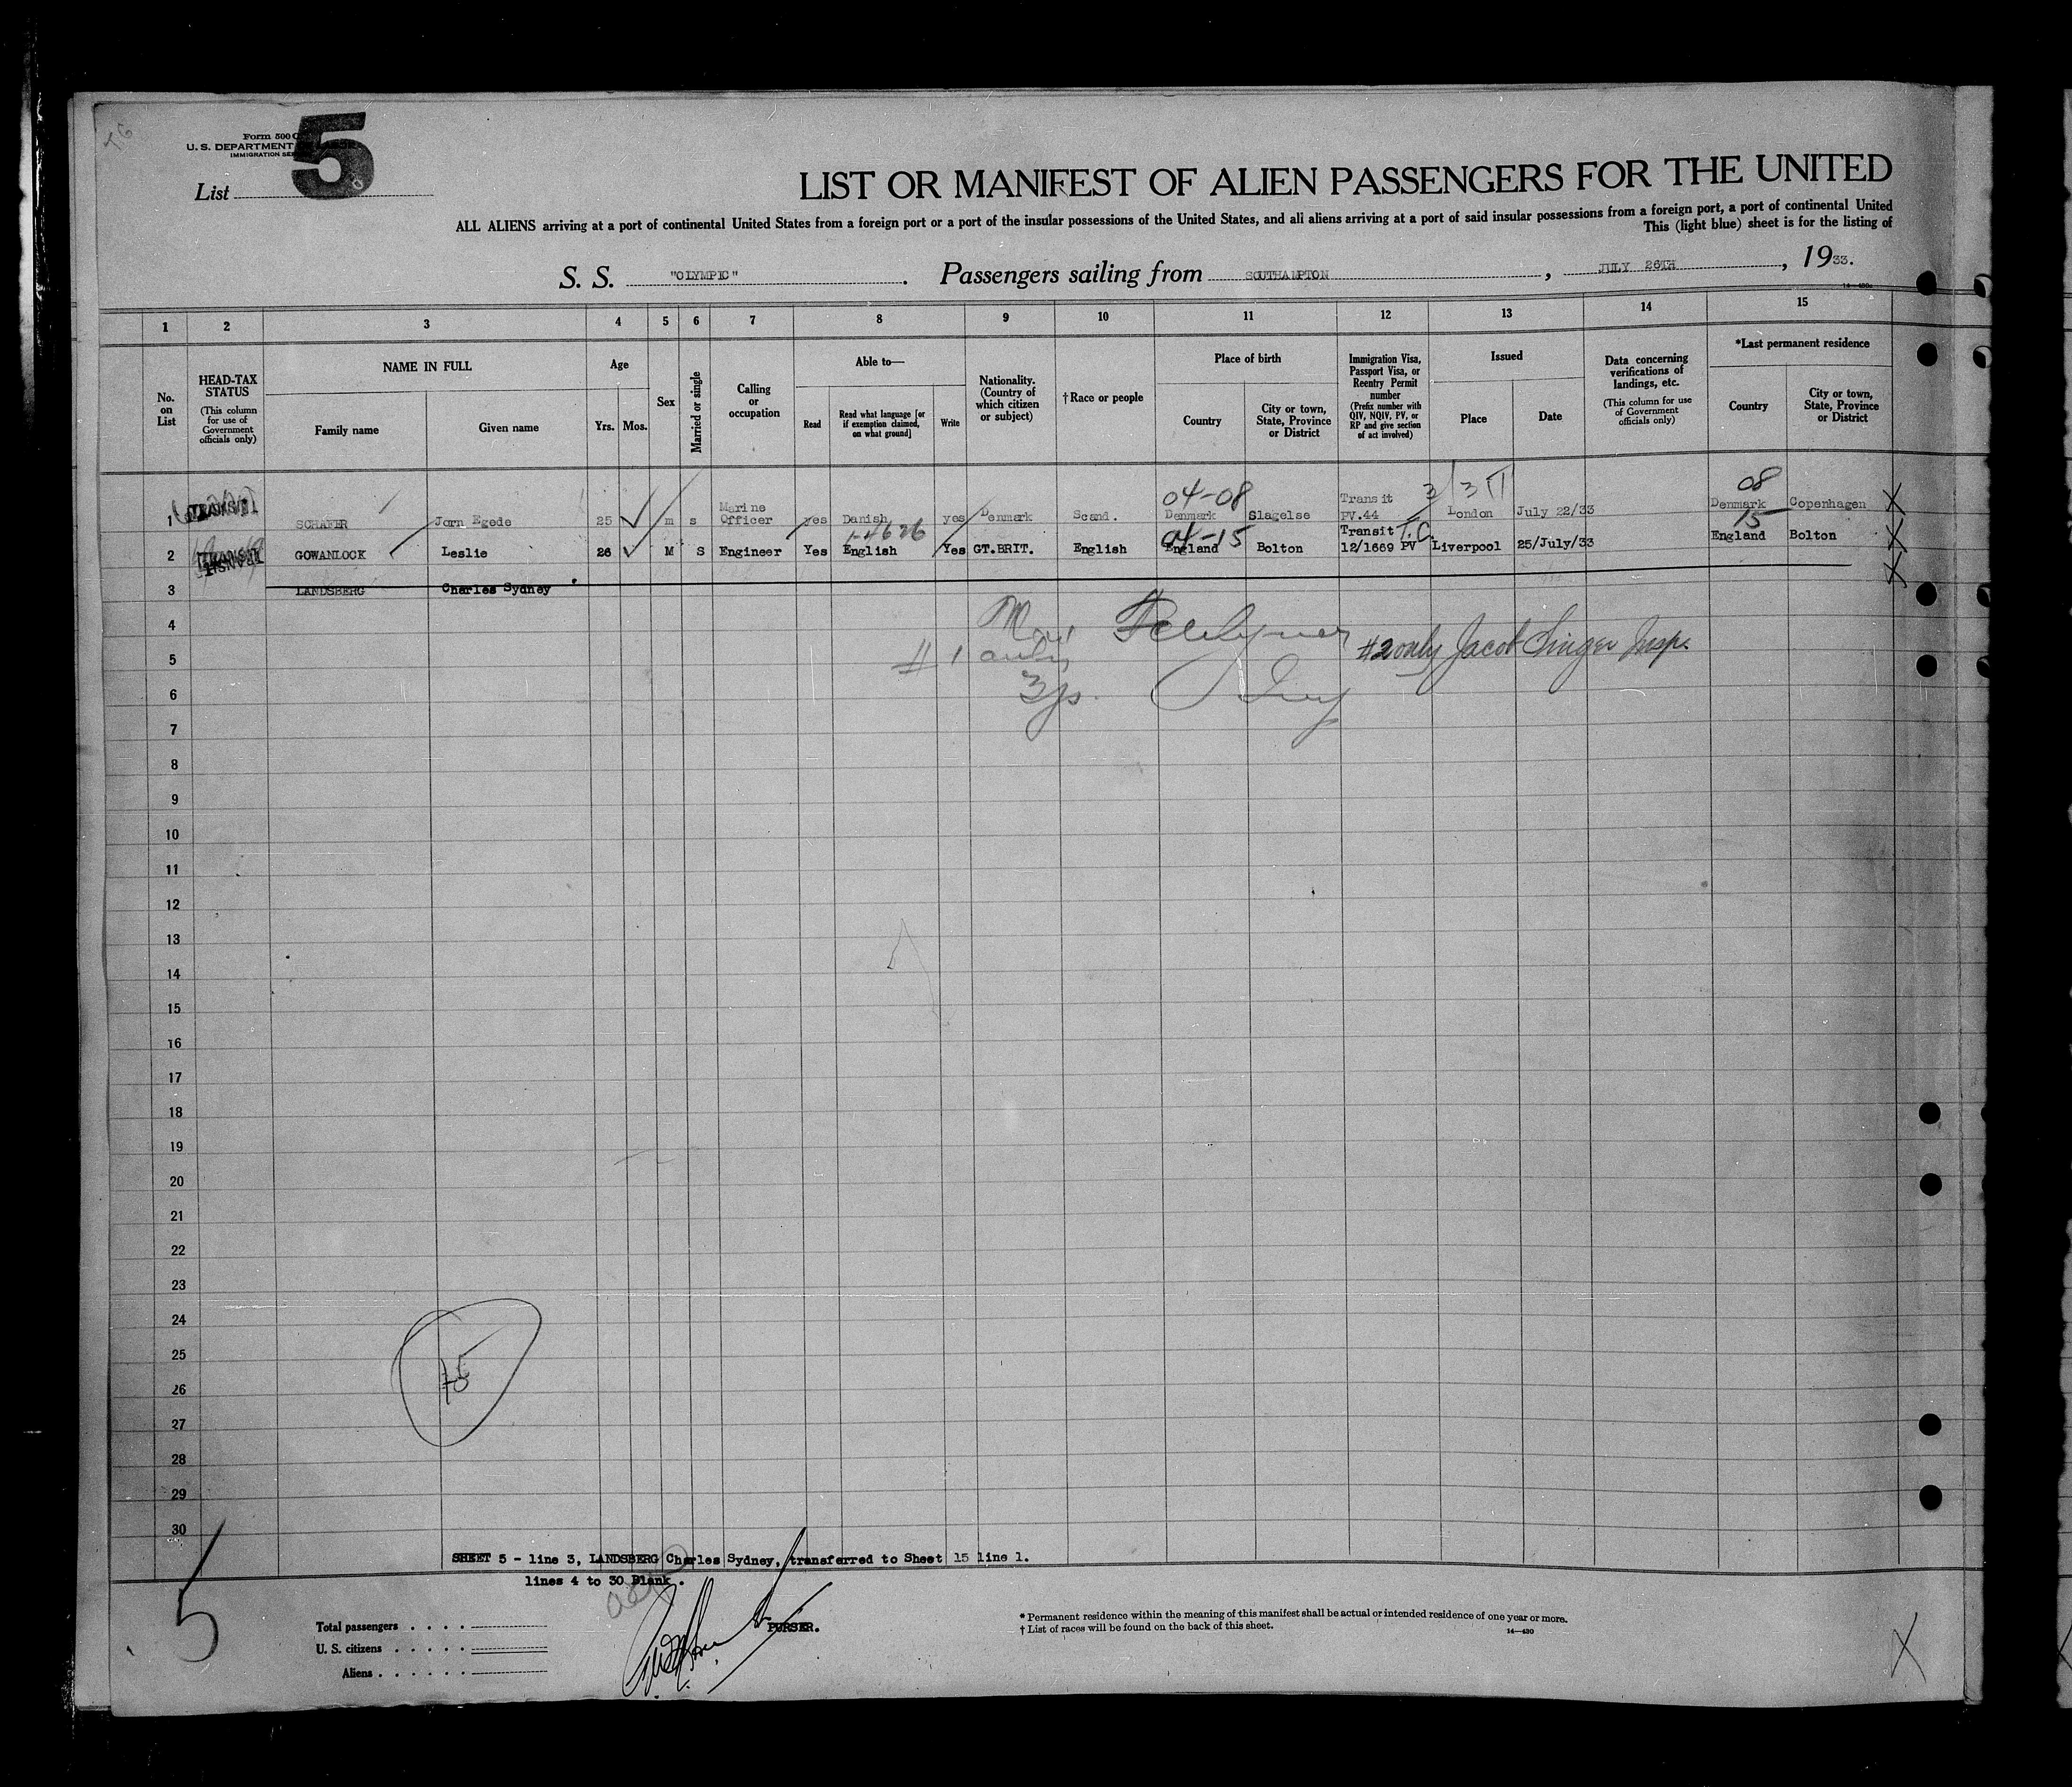 Form 500
U. S. DEPARTMENT
IMMIGRATION SER
List 5
LIST OR MANIFEST OF ALIEN PASSENGERS FOR THE UNITED
ALL ALIENS arriving at a port of continental United States from a foreign port or a port of the insular possessions of the United States, and all aliens arriving at a port of said insular possessions from a foreign port, a port of continental United
This (light blue) sheet is for the listing of
S. S. "OLYMPIC". Passengers sailing from SOUTHAMPTON, JULY 26TH, 1933.
1 2 3 4 5 6 7 8 9 10 11 12 13 14 15
No. on List
HEAD-TAX STATUS (This column for use of Government officials only)
NAME IN FULL
Family name
Given name
Age
Yrs. Mos.
Sex
Married or single
Calling or occupation
Able to—
Read
Read what language [or if exemption claimed, on what ground]
Write
Nationality. (Country of which citizen or subject)
†Race or people
Place of birth
Country
City or town, State, Province or District
Immigration Visa, Passport Visa, or Reentry Permit number (Prefix number with QIV, NQIV, PV, or RP and give section of act involved)
Issued
Place
Date
Data concerning verifications of landings, etc. (This column for use of Government officials only)
*Last permanent residence
Country
City or town, State, Province or District
04-08 08
1 TRANSIT SCHAFER Jorn Egede 25 m s Marine Officer yes Danish yes Denmark Scand. Denmark Slagelse Transit PV.44 London July 22/33 Denmark Copenhagen X
04-15 T.C. 15
2 TRANSIT GOWANLOCK Leslie 26 M S Engineer Yes English Yes GT.BRIT. English England Bolton Transit 12/1669 PV Liverpool 25/July/33 England Bolton X
3 LANDSBERG Charles Sydney X
4
#2 only Jacob Singer Insp.
5 # 1 only
6
7
8
9
10
11
12
13
14
15
16
17
18
19
20
21
22
23
24
25
26
27
28
29
30
SHEET 5 - line 3, LANDSBERG Charles Sydney, transferred to Sheet 15 line 1.
lines 4 to 30 Blank.
5
PURSER.
Total passengers . . . .
U. S. citizens . . . . .
Aliens . . . . . .
* Permanent residence within the meaning of this manifest shall be actual or intended residence of one year or more.
† List of races will be found on the back of this sheet.
14—430
X